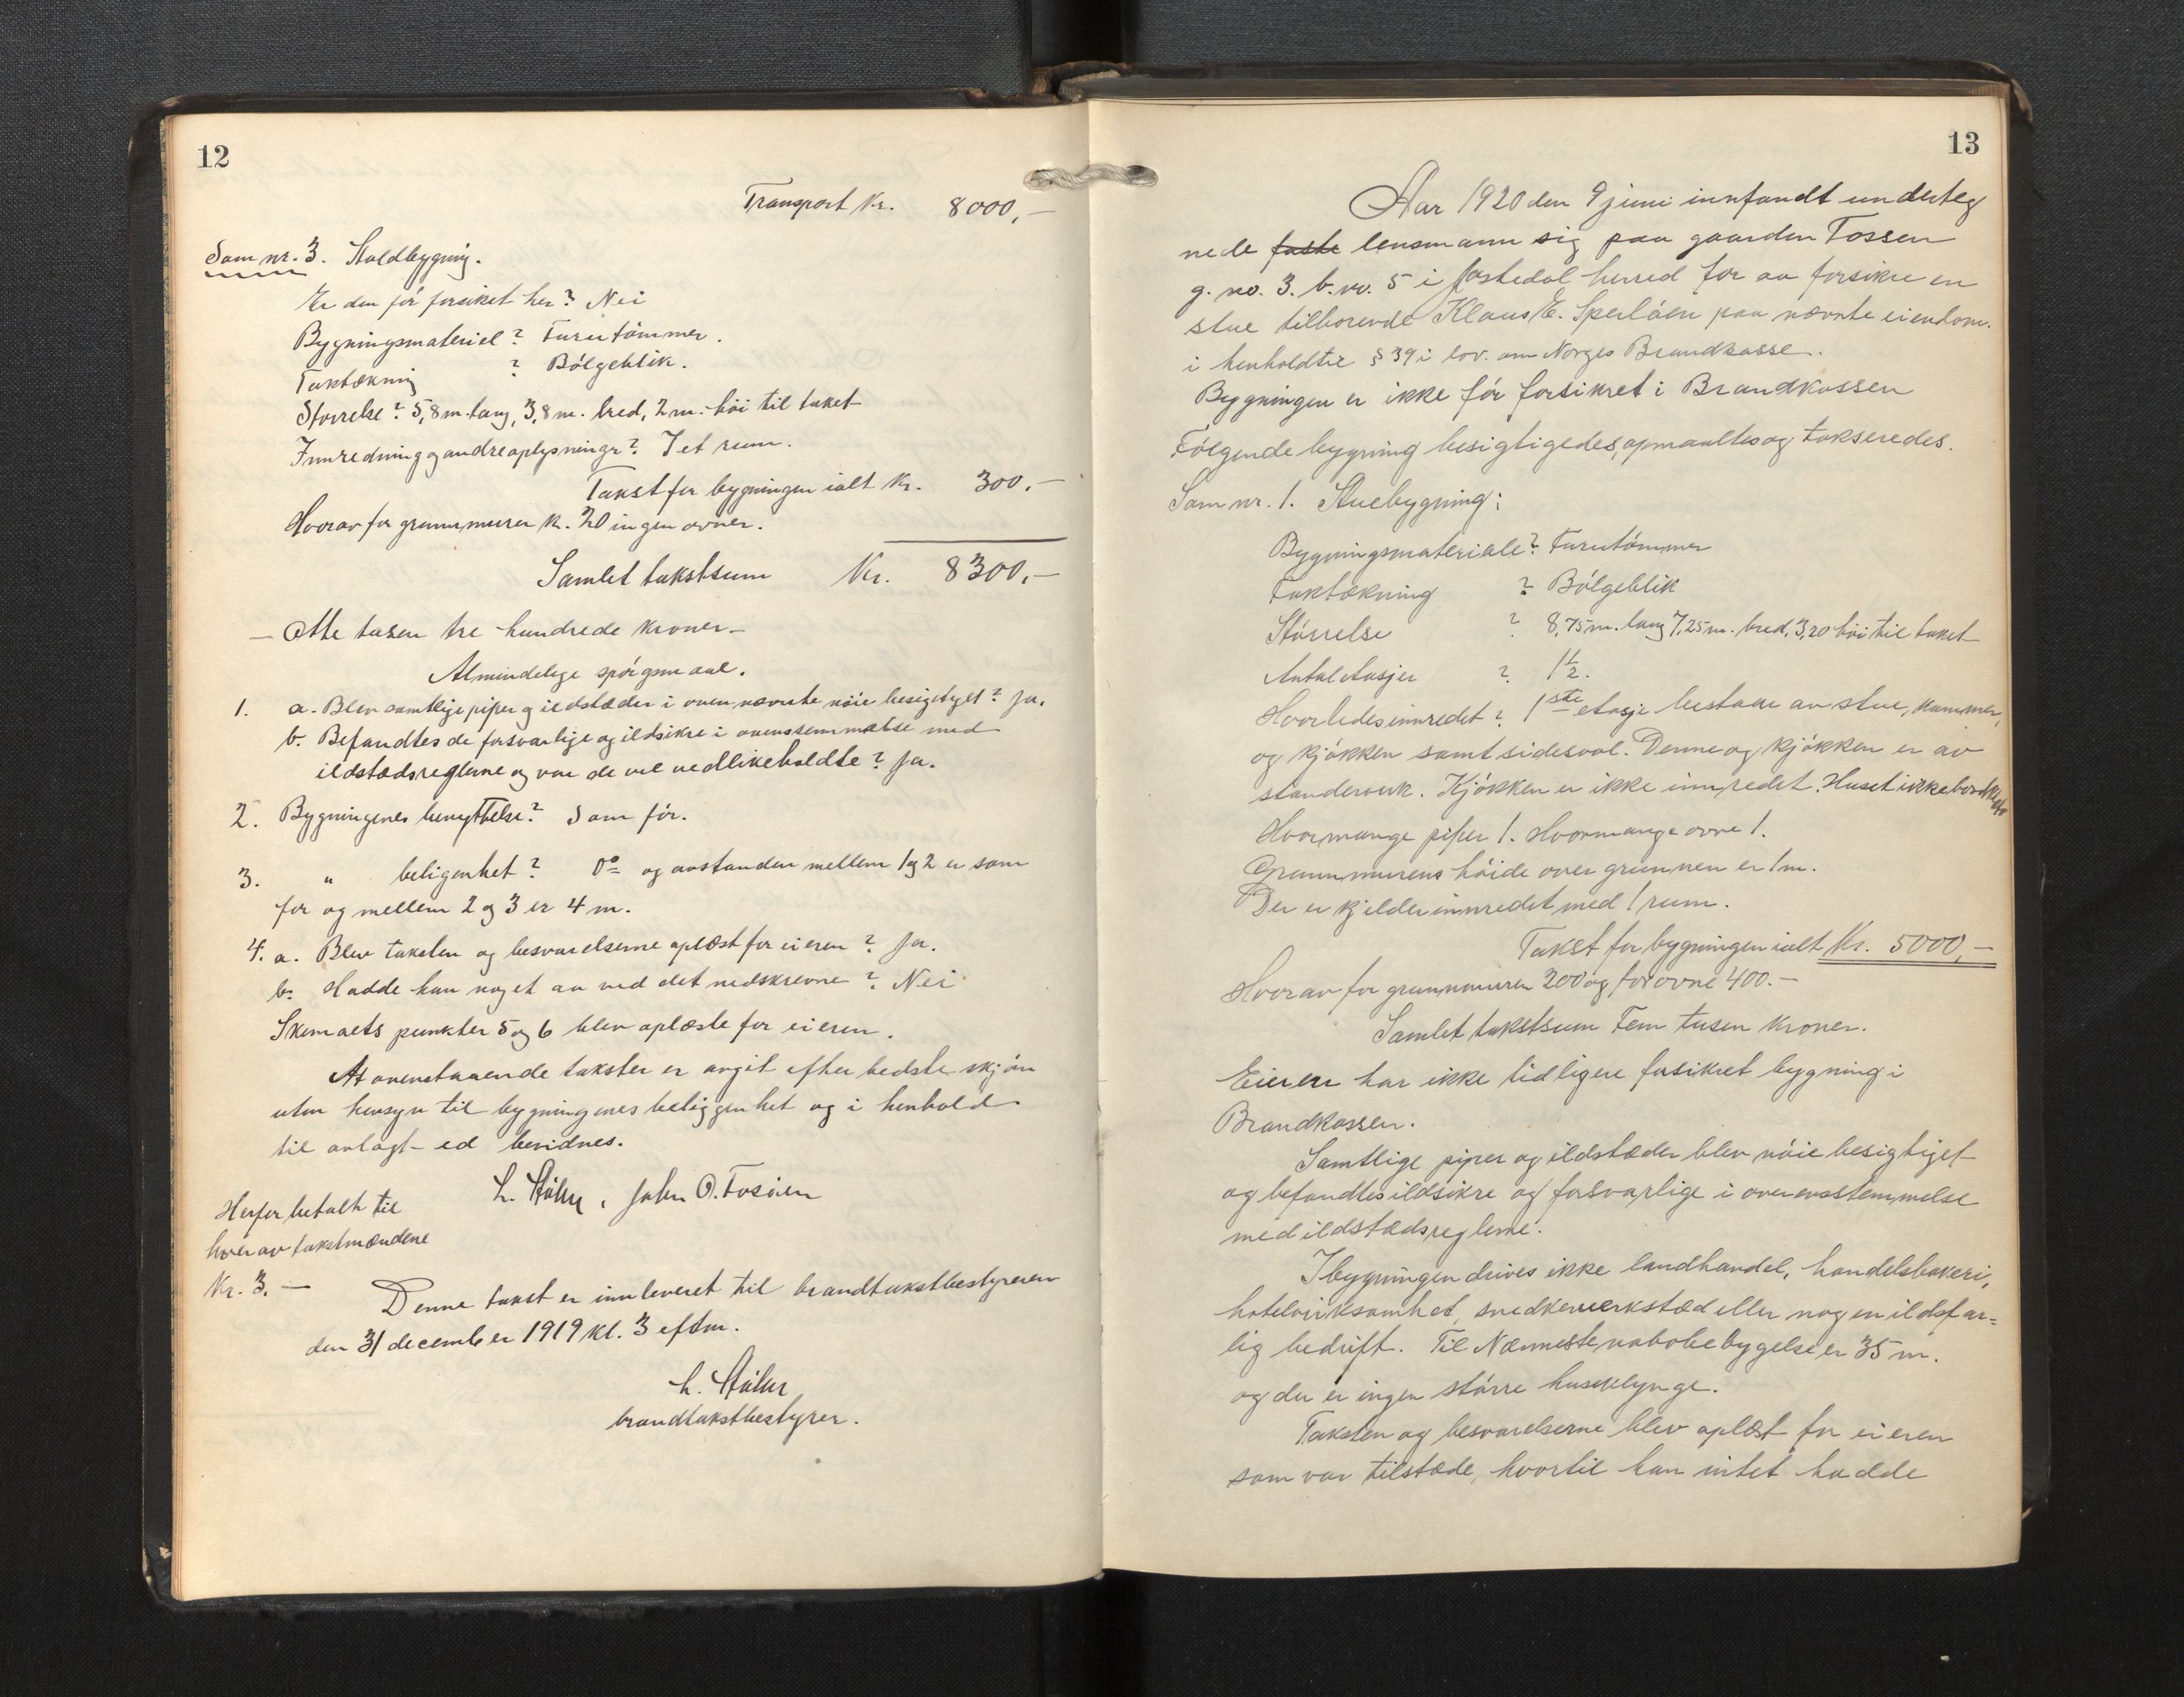 12
Transport Kr. 8000,-
Som nr. 3. Staldbygning.
Er den før forsikret her? Nei
Bygningsmateriel? Furutømmer.
Taktækning ? Bølgeblik.
Størrelse? 5,8 m. lang, 3,8 m. bred, 2 m. høi til taket
Innredning og andre oplysninger? I et rum.
Takst for bygningen ialt Kr. 300,-
Hvorav for grunnmuren kr. 20 ingen ovner.
Samlet takstsum Kr. 8300,-
- Otte tusen tre hundrede kroner -
Almindelige spørgsmaal.
1. a. Blev samtlige piper og ildstæder i ovennævnte nøie besigtiget? Ja.
b. Befandtes de forsvarlige og ildsikre i overensstemmelse med
ildstædsreglerne og var de vel vedlikeholdte? Ja.
2. Bygningenes benyttelse? Som før.
3. " beligenhet? Do og avstanden mellem 1 og 2 er som
før og mellem 2 og 3 er 4 m.
4. a. Blev taksten og besvarelserne oplæst for eieren? Ja.
b. Hadde han noget aa ved det nedskrevne? Nei
Skemaets punkter 5 og 6 blev oplæste for eieren.
At ovenstaaende takster er avgit efter bedste skjøn
uten hensyn til bygningenes beliggenhet og i henhold
til avlagt ed bevidnes.
John O. Fosøien
Herfor betalt til
hver av takstmændene
Kr. 3. -
Denne takst er innleveret til brandtakstbestyreren
den 31 december 1919 kl. 3 eftm.
brandtakstbestyrer.
13
Aar 1920 den 9 juni innfandt underteg
nede faste lensmann sig paa gaarden Fossen
g. no. 3. b. no. 5 i Jostedal herred for aa forsikre en
stue tilhørende Klaus E. Sperløen paa nævnte eiendom.
i henhold til § 39 i lov. om Norges Brandkasse.
Bygningen er ikke før forsikret i Brandkassen
Følgende bygning besigtigedes, opmaaltes og takseredes.
Som nr. 1. Stuebygning:
Bygningsmateriale? Furutømmer
Taktækning ? Bølgeblik
Størrelse ? 8,75 m. lang 7,25 m. bred, 3,20 høi til taket
Antal etasjer ? 1½.
Hvorledes innredet? 1ste etasje bestaar av stue, kammer,
og kjøkken samt sidesval. Denne og kjøkken er av
standerverk. Kjøkken er ikke innredet. Huset ikke bordklædt
Hvormange piper 1. Hvormange ovne 1.
Grunnmurens høide over grunnen er 1 m.
Der er kjelder innredet med 1 rum.
Takst for bygningen ialt Kr. 5000,-
Hvorav for grunnmuren 200 og for ovne 400.-
Samlet takstsum Fem tusen kroner.
Eieren har ikke tidligere forsikret bygning i
Brandkassen.
Samtlige piper og ildstæder blev nøie besigtiget
og befandtes ildsikre og forsvarlige i overensstemmelse
med ildstædsreglerne.
I bygningen drives ikke landhandel, handelsbakeri,
hotelvirksomhet, snedkerverkstæd eller nogen ildsfar=
lig bedrift. Til Nærmeste nabobebygelse er 35 m.
og der er ingen større huseklynge.
Taksten og besvarelserne blev oplæst for eieren
som var tilstæde, hvortil han intet hadde